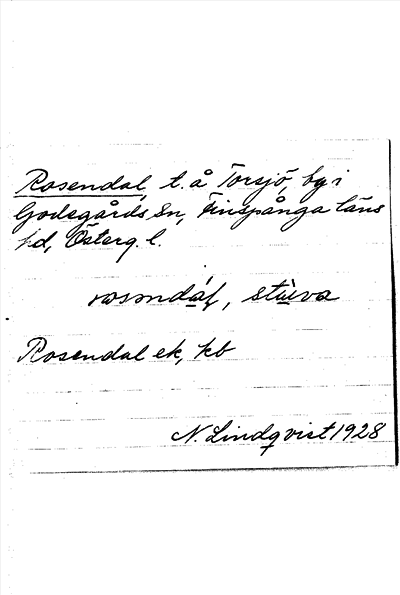 Rosendal, t. å Torsjö, by i
Godegårds sn, Finspånga läns
hd, Österg. l.
rosendáƚ, stùva
Rosendal ek, kb
N. Lindqvist 1928